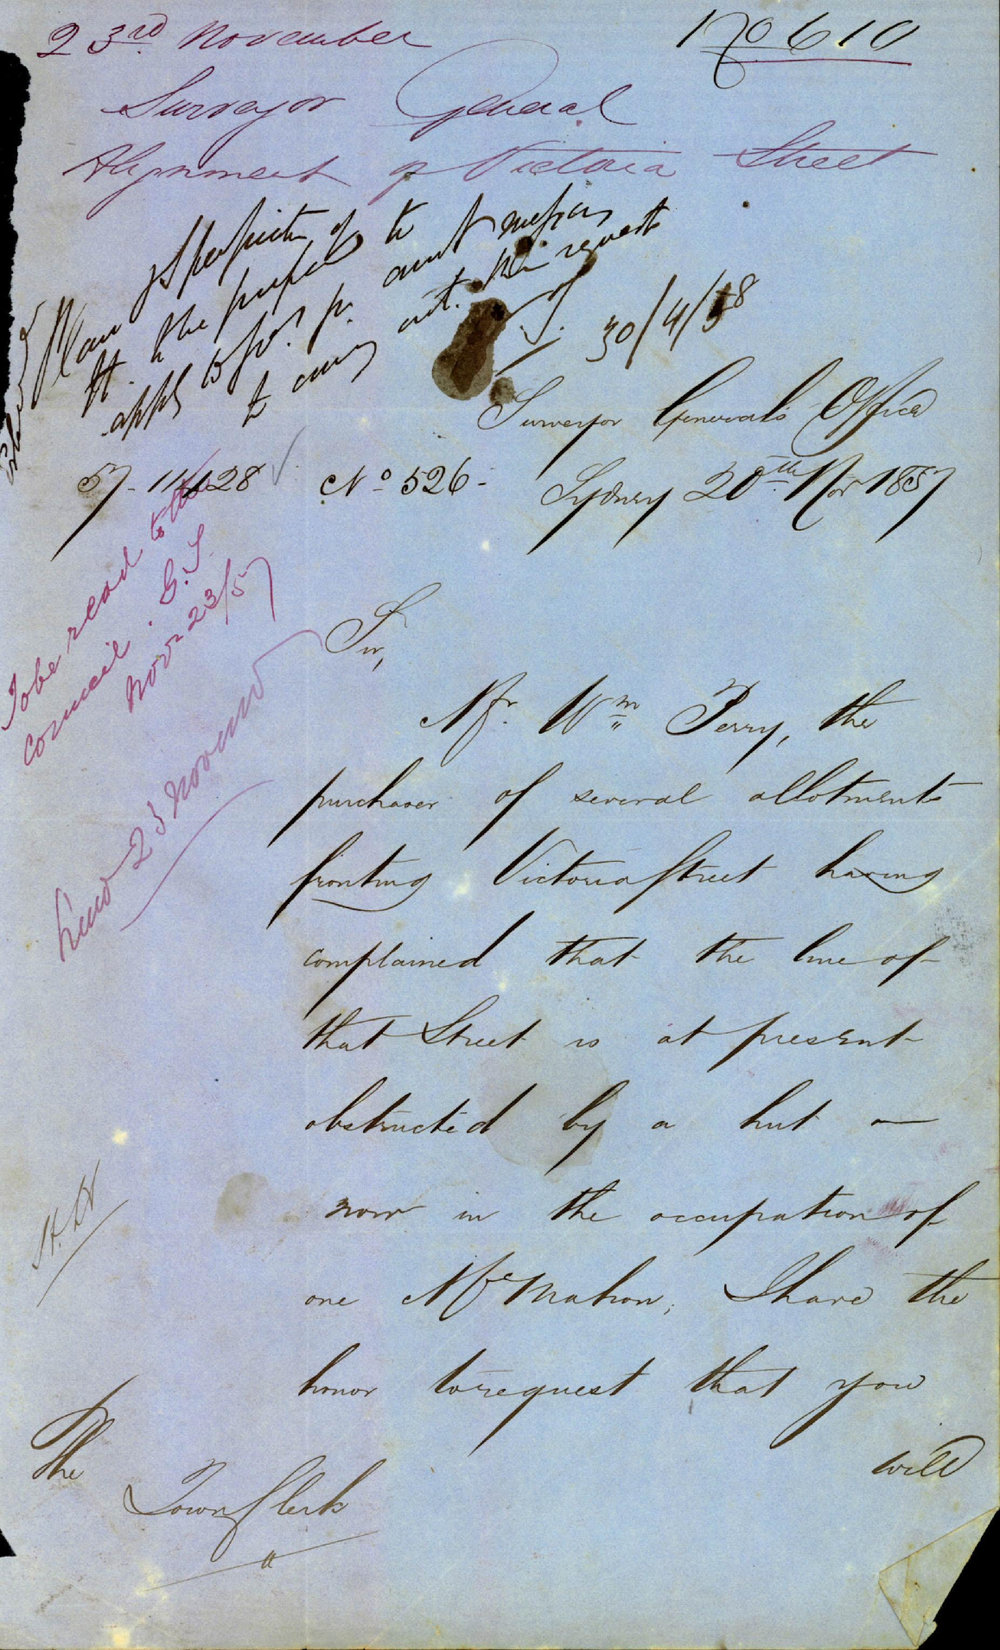 23rd November
No 610
Surveyor General
Alignment of Victoria Street
Plan & specification of
the purpose to
apply to for
to carry out the request
30/4/58
Surveyor General's Office
57-11/128 No 526- Sydney 20th Nov 1857
To be read to the
Council.
Nov 23/57
23 November
Sir,
Mr. Wm Perry, the
purchaser of several allotments
fronting Victoria Street having
complained that the line of
that Street is at present
obstructed by a hut
now in the occupation of
one McMahon, I have the
honor to request that you
will
The
Town Clerk